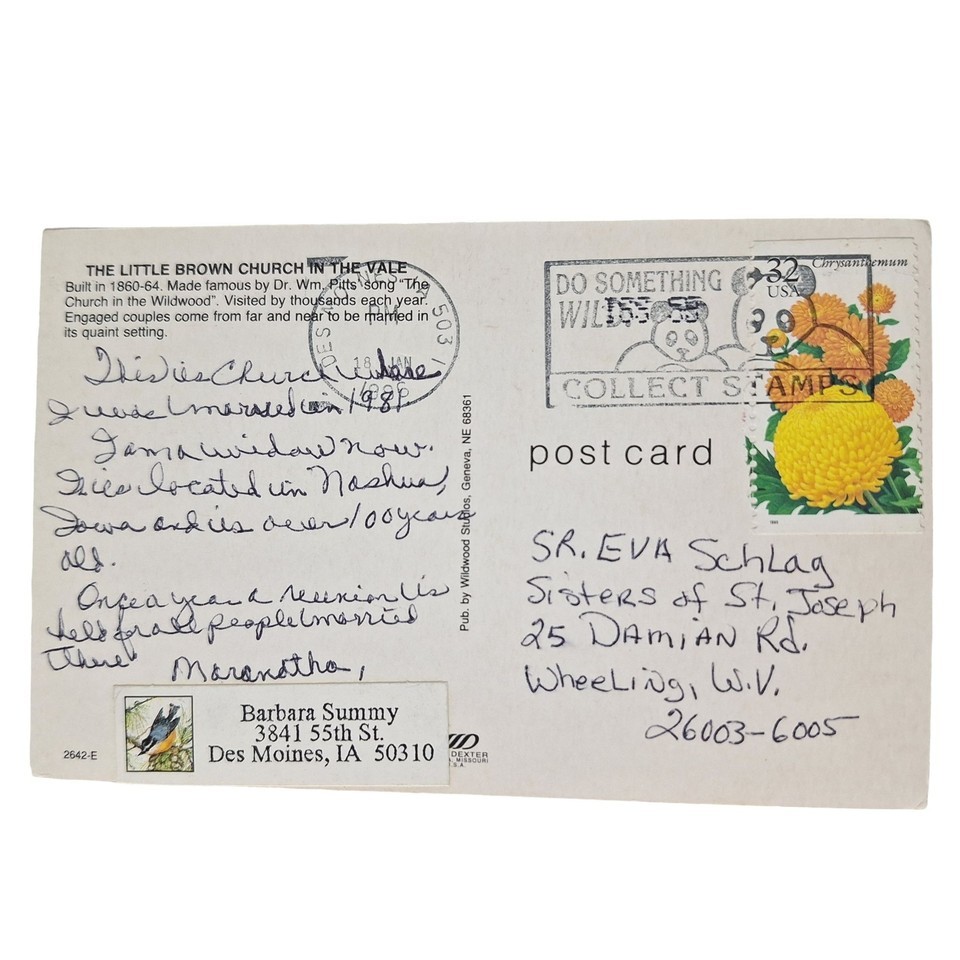 THE LITTLE BROWN CHURCH IN THE VALE
Built in 1860-64. Made famous by Dr. Wm. Pitts' song "The
Church in the Wildwood". Visited by thousands each year.
Engaged couples come from far and near to be married in
its quaint setting.
This is Church where
I was married in 1981
I am a widow now.
It is located in Nashua,
Iowa and is over 100 years
old.
Once a year a reunion is
held for all people married
there
Maranatha,
Barbara Summy
3841 55th St.
Des Moines, IA 50310
2642-E
DEXTER
MISSOURI
U.S.A.
Pub. by Wildwood Studios, Geneva, NE 68361
DES MOINES IA 503
PM
18 JAN
DO SOMETHING
WILD
COLLECT STAMPS
32
USA
Chrysanthemum
post card
SR. EVA Schlag
Sisters of St. Joseph
25 DAMIAN Rd.
Wheeling, W.V.
26003-6005